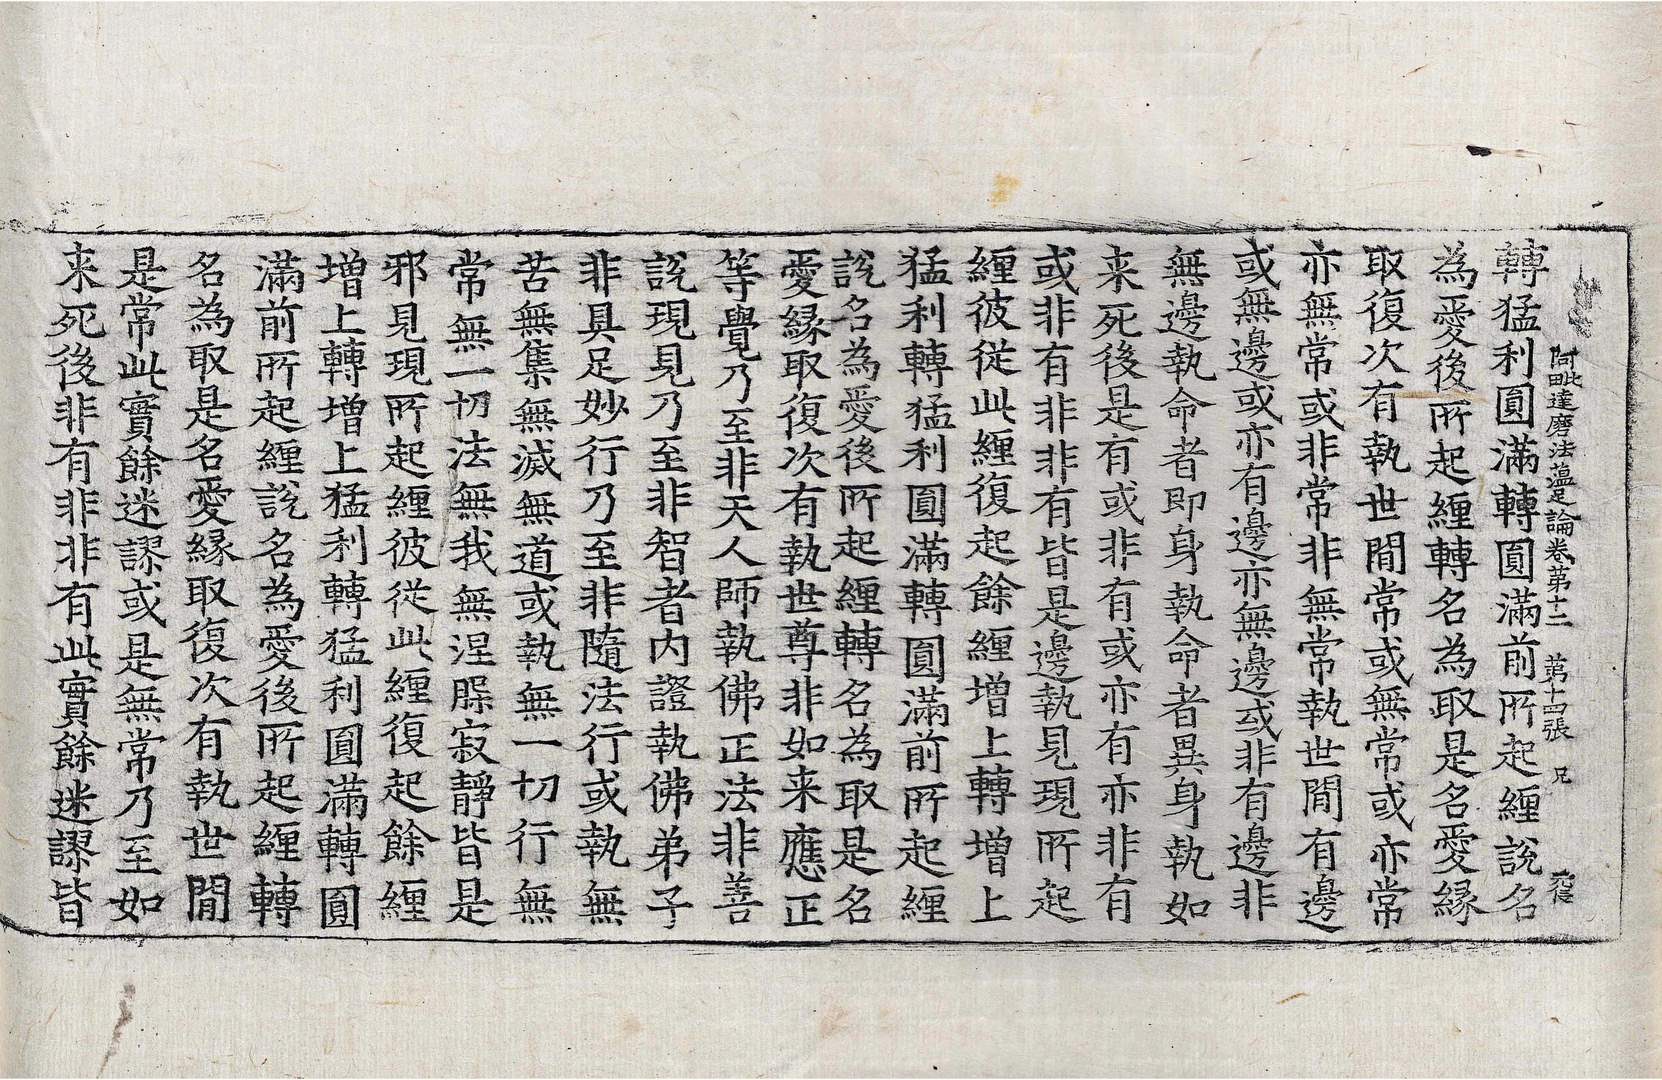 阿毗達磨法蘊足論卷第十二 第十四張 兄
轉猛利圓滿轉圓滿前所起纏說名
為愛後所起纏轉名為取是名愛緣
取復次有執世閒常或無常或亦常
亦無常或非常非無常執世閒有邊
或無邊或亦有邊亦無邊或非有邊非
無邊執命者即身執命者異身執如
来死後是有或非有或亦有亦非有
或非有非非有皆是邊執見現所起
纏彼從此纏復起餘纏增上轉增上
猛利轉猛利圓滿轉圓滿前所起纏
說名為愛後所起纏轉名為取是名
愛緣取復次有執世尊非如来應正
等覺乃至非天人師執佛正法非善
說現見乃至非智者內證執佛弟子
非具足妙行乃至非隨法行或執無
苦無集無滅無道或執無一切行無
常無一切法無我無涅槃寂靜皆是
邪見現所起纏彼從此纏復起餘纏
增上轉增上猛利轉猛利圓滿轉圓
滿前所起纏說名為愛後所起纏轉
名為取是名愛緣取復次有執世閒
是常此實餘迷謬或是無常乃至如
来死後非有非非有此實餘迷謬皆